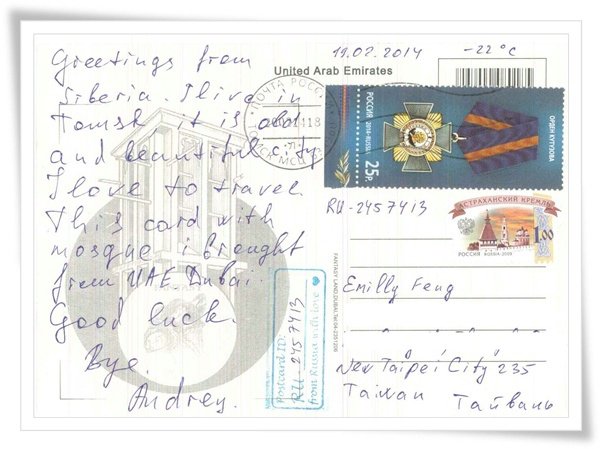 Greetings from
Siberia. I live in
Tomsk it is old
and beautiful city
I love to travel
This card with
mosque i brought
from UAE. Dubai.
Good luck.
Bye.
Andrey.
19.02.2014
-22°C
United Arab Emirates
ПОЧТА РОССИИ
РОССИЯ 2014·RUSSIA
25р.
ОРДЕН КУТУЗОВА
RU-2457413
АСТРАХАНСКИЙ КРЕМЛЬ
РОССИЯ RUSSIA·2009
1.00
Postcard ID:
RU-2457413
from Russia with love
Emilly Feng
New Taipei City 235
Taiwan Тайвань